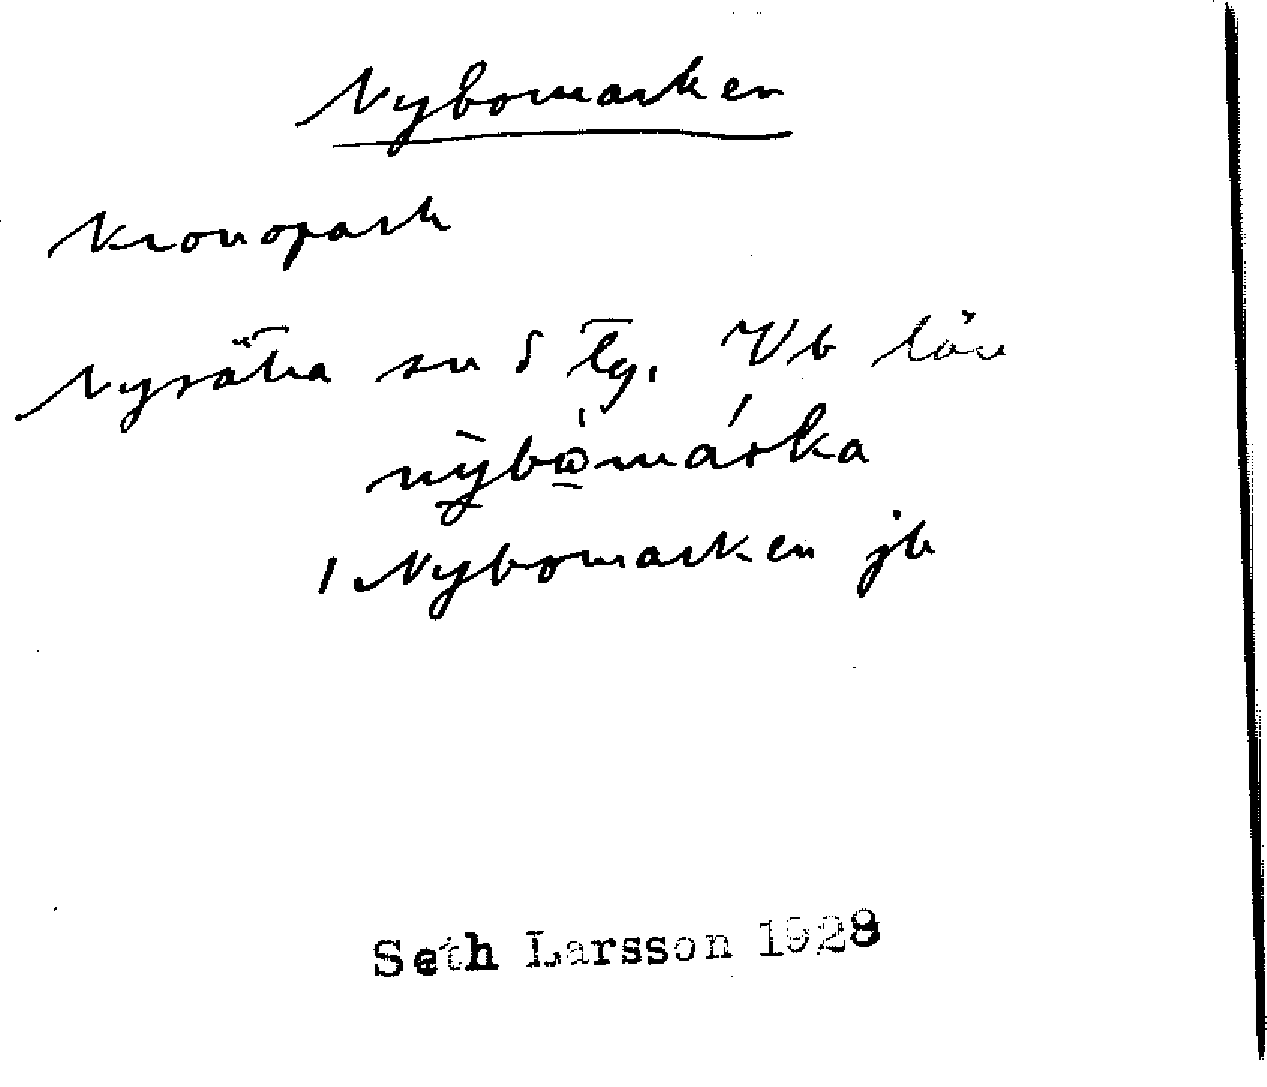 Nybomarken
Kronopark
Nysätra sn S tg. Vb län
nybomárka
1 Nybomarken jb
Seth Larsson 1928